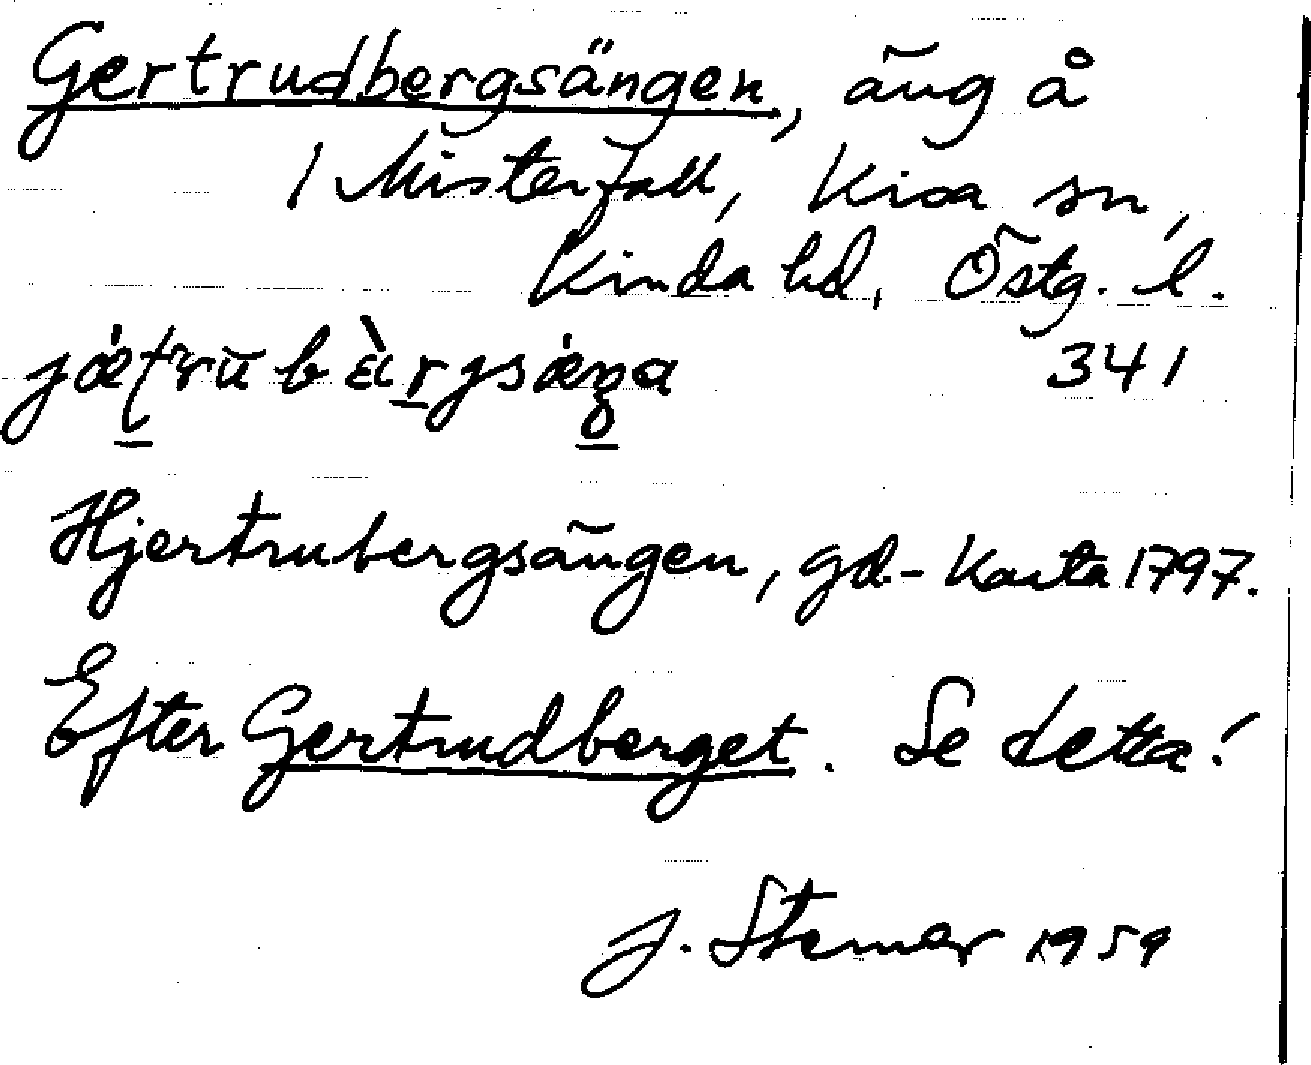 Gertrudbergsängen, äng å
1 Misterfall, Kisa sn,
Kinda hd, Östg. l.
341
Hjertrubergsängen, gd-karta 1797.
Efter Gertrudberget. Se detta!
J. Sterner 1959